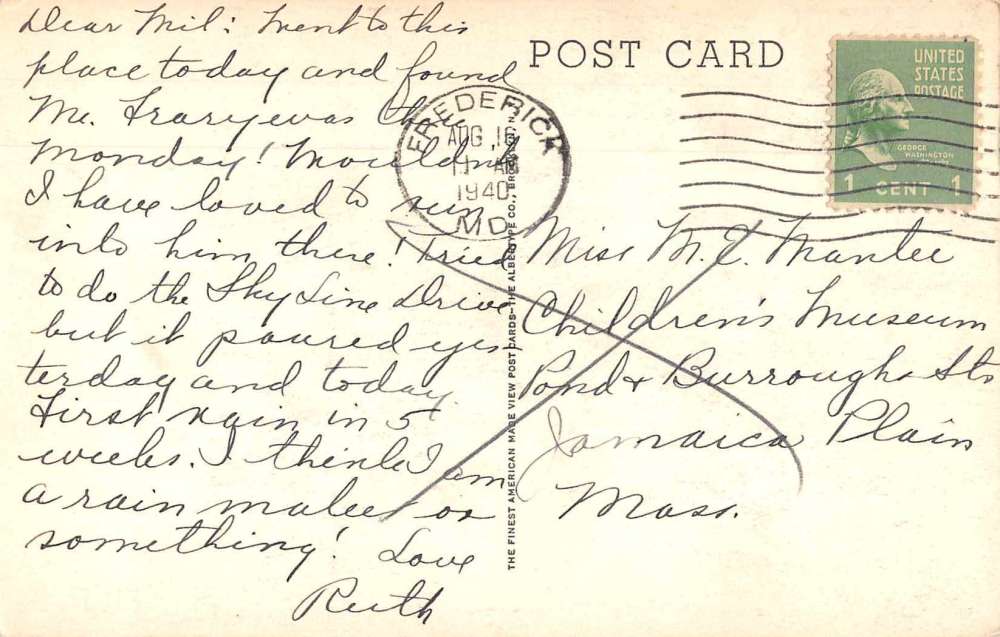 Dear Mil: Went to this
place today and found
Mr. Frary was there
Monday! Wouldn't
I have loved to run
into him there! Tried
to do the Sky Line Drive
but it poured yes
terday and today.
First rain in 5
weeks. I think I am
a rain maker or
something! Love
Ruth
POST CARD
FREDERICK
AUG 16
AM
1940
MD.
UNITED
STATES
POSTAGE
GEORGE
WASHINGTON
1 CENT 1
THE FINEST AMERICAN MADE VIEW POST CARDS—THE ALBERTYPE CO.,
Miss M. E. Mantee
Children's Museum
Pond & Burroughs Sts
Jamaica Plain
Mass.